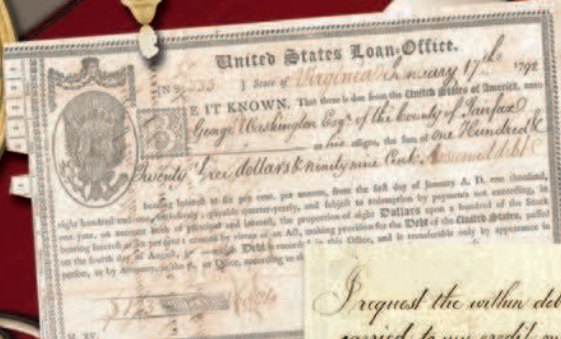 United States Loan-Office.
State of Virginia January 17th 1792
BE IT KNOWN, That there is due from the United States of America, unto
George Washington Esqr. of the County of Fairfax
or his assigns, the sum of One Hundred &
Twenty three dollars & ninety nine Cents Assumed debt
bearing Interest at six per cent. per annum, from the first day of January A. D. one thousand,
eight hundred and one inclusively, payable quarter-yearly, and subject to redemption by payments not exceeding, in
one year, on account both of principal and interest, the proportion of eight Dollars upon a hundred of the Stock
bearing Interest at six per cent. created by virtue of an Act, making provision for the Debt of the United States, passed
on the fourth day of August, Debt is recorded in this Office, and is transferable only by appearance in
person, or by Attorney, at the Office, according to
I request the within deb
carried to my credit